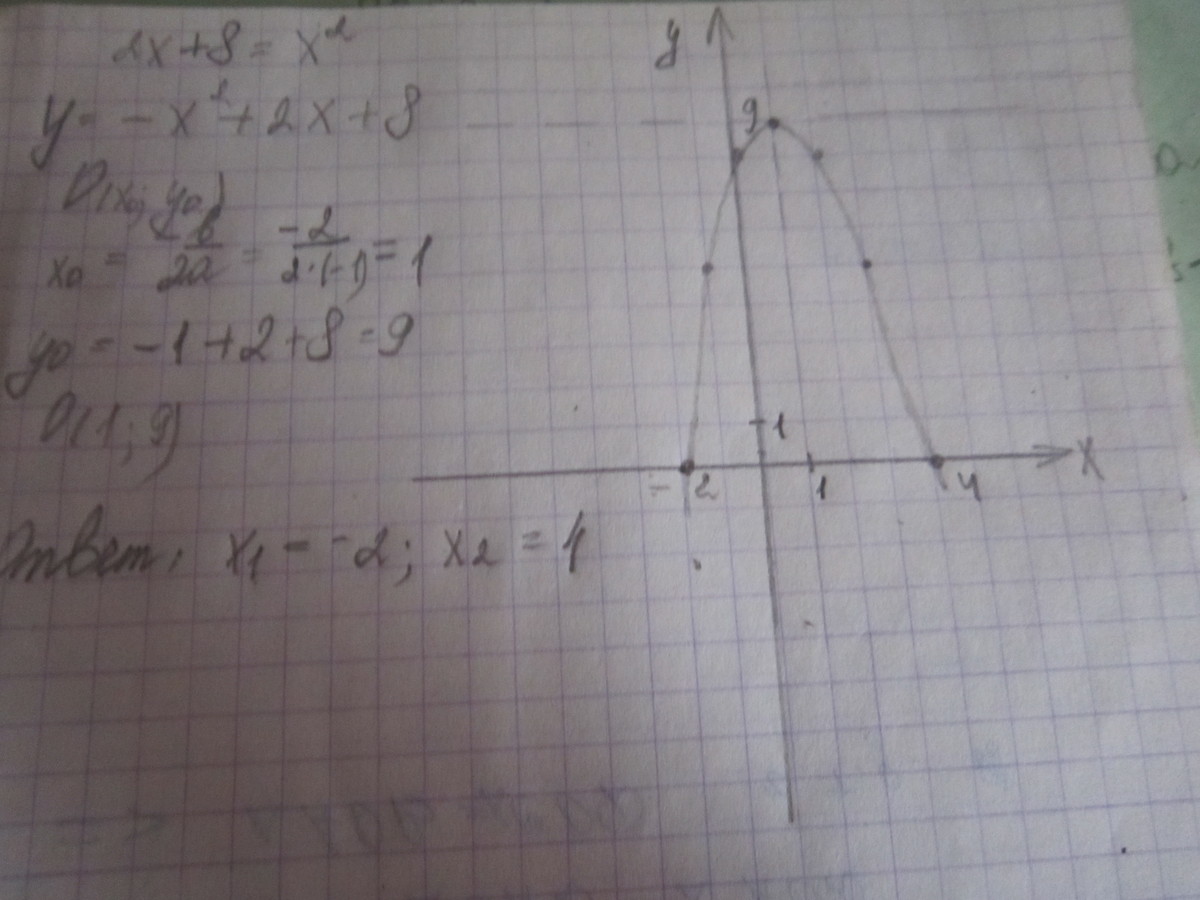 2x+8 = x²
y = -x²+2x+8
O(x0; y0)
x0 = -b/2a = -2/2·(-1) = 1
y0 = -1+2+8=9
O(1; 9)
Ответ: x1 = -2; x2 = 4
y
9
1
-2
1
4
x